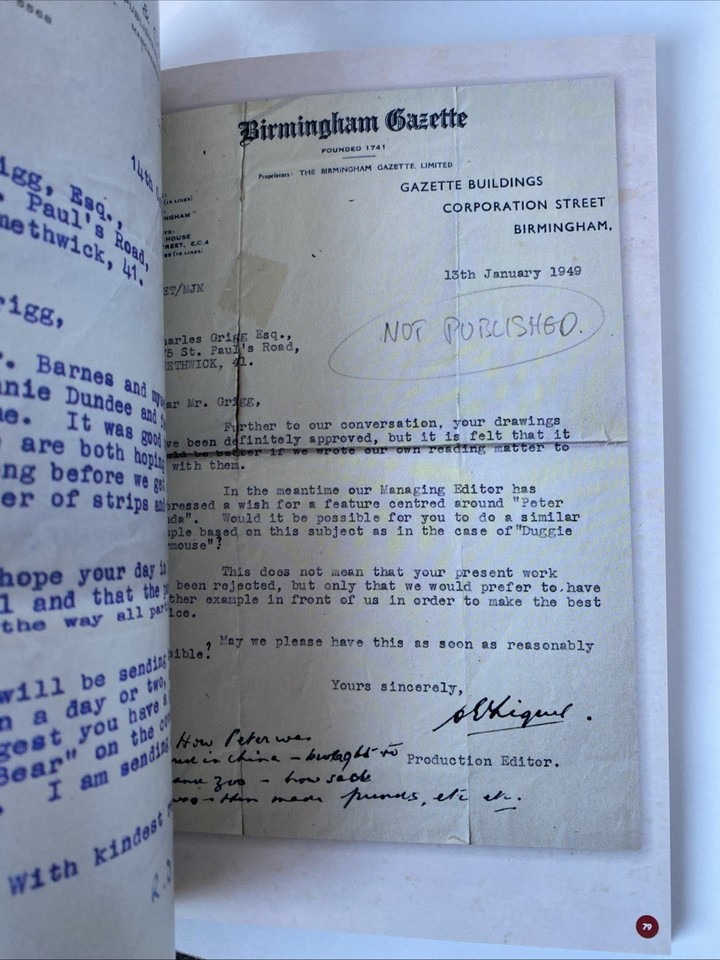 14th
igg, Esq.,
Paul's Road,
methwick, 41.
rigg,
. Barnes and my
nie Dundee and
me. It was good
are both hoping
ng before we get
er of strips and
hope your day in
l and that the
the way all part
will be sending
n a day or two,
gest you have a
Bear" on the
. I am sending
With kindest
Birmingham Gazette
FOUNDED 1741
Proprietors: THE BIRMINGHAM GAZETTE, LIMITED
GAZETTE BUILDINGS
CORPORATION STREET
BIRMINGHAM,
(10 LINES)
NGHAM"
HOUSE
REET, E.C.4
(10 LINES)
13th January 1949
ET/MJM
NOT PUBLISHED.
harles Grigg Esq.,
75 St. Paul's Road,
METHWICK, 41.
ar Mr. Grigg,
Further to our conversation, your drawings
ve been definitely approved, but it is felt that it
uld be better if we wrote our own reading matter to
with them.
In the meantime our Managing Editor has
pressed a wish for a feature centred around "Peter
nda". Would it be possible for you to do a similar
mple based on this subject as in the case of "Duggie
rmouse"?
This does not mean that your present work
been rejected, but only that we would prefer to have
ther example in front of us in order to make the best
ice.
May we please have this as soon as reasonably
sible?
Yours sincerely,
Production Editor.
How Peter was
in China - brought to
zoo - how sack
then made friends, etc etc.
79